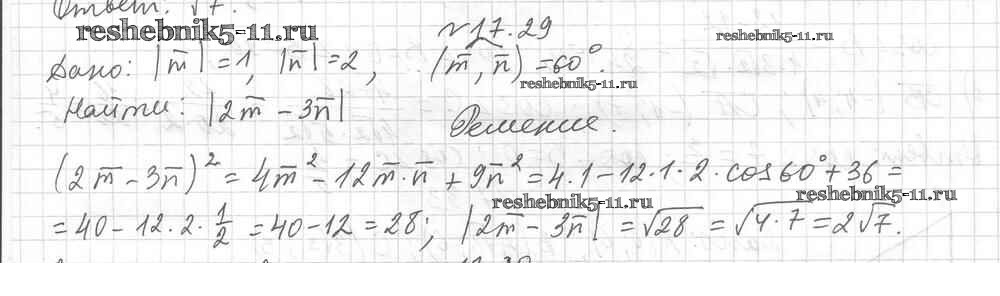 Ответ: √7.
reshebnik5-11.ru
№17.29
reshebnik5-11.ru
Дано: |m̅| = 1, |n̅| = 2, (m̅, n̅) = 60°.
reshebnik5-11.ru
Найти: |2m̅ - 3n̅|
Решение.
(2m̅ - 3n̅)² = 4m̅² - 12m̅·n̅ + 9n̅² = 4·1 - 12·1·2·cos60° + 36 =
reshebnik5-11.ru
reshebnik5-11.ru
= 40 - 12·2·1/2 = 40 - 12 = 28; |2m̅ - 3n̅| = √28 = √4·7 = 2√7.